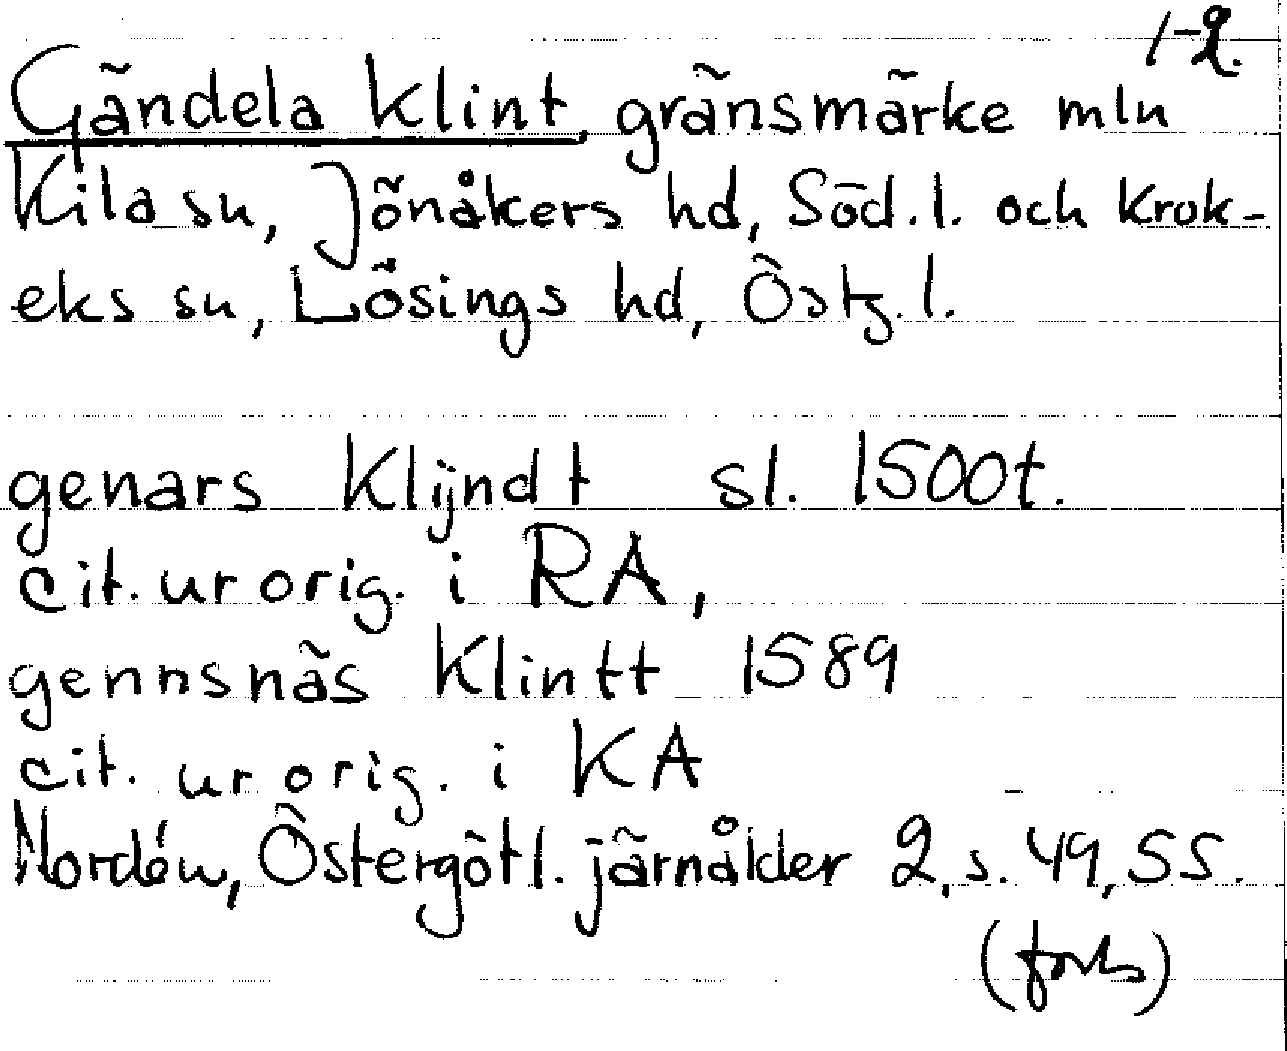 1-2.
Gändela Klint, gränsmärke mln
Kila sn, Jönåkers hd, Söd. l. och Krok-
eks sn, Lösings hd, Östg. l.
genars Klijndt sl. 1500t.
cit. ur orig. i RA,
gennsnäs Klintt 1589
cit. ur orig. i KA
Nordén, Östergötl. järnålder 2, s. 49, 55.
(forts)